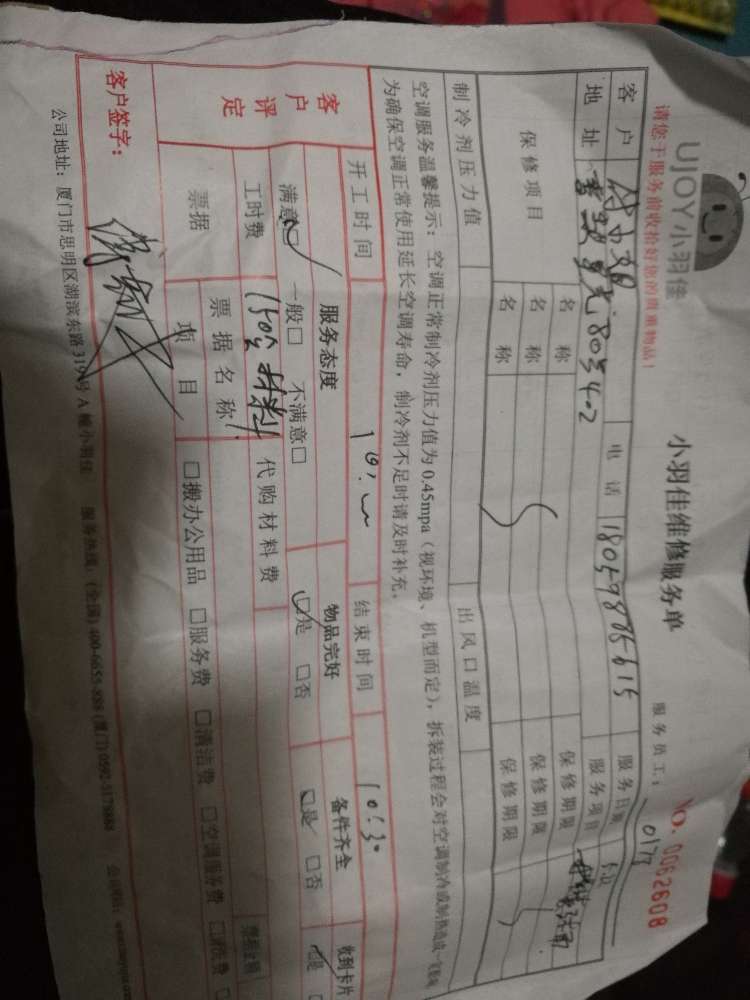 UJOY小羽佳
小羽佳维修服务单
No. 0062608
请您于服务前收拾好您的贵重物品!
服务员工: 0178
客户 电话 18059885615 服务日期
地址 803 402 服务项目
保修项目 名称 保修期限
名称 保修期限
名称 保修期限
制冷剂压力值 出风口温度
空调服务温馨提示:空调正常制冷剂压力值为0.45mpa(视环境、机型而定),拆装过程会对空调制冷或制热造成一定影响
为确保空调正常使用延长空调寿命,制冷剂不足时请及时补充。
开工时间 结束时间 10:30
客户评定 服务态度 物品完好 备件齐全 收到卡片
满意□ 一般□ 不满意□ □是 □否 □是 □否 □是
工时费 150含材料 代购材料费
票据 票据名称 票据金额
项目 □搬办公用品 □服务费 □清洁费 □空调服务费 □消洗费
客户签字:
公司地址:厦门市思明区湖滨东路319号A幢小羽佳 服务热线:(全国)400-6655-888 (厦门)0592-5178888